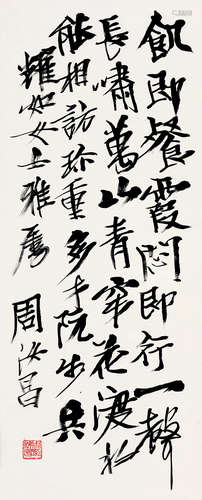 飢即餐霞悶即行一聲
長嘯萬山青穿花渡水
能相訪珍重多才阮步兵
耀如女士雅屬
周汝昌